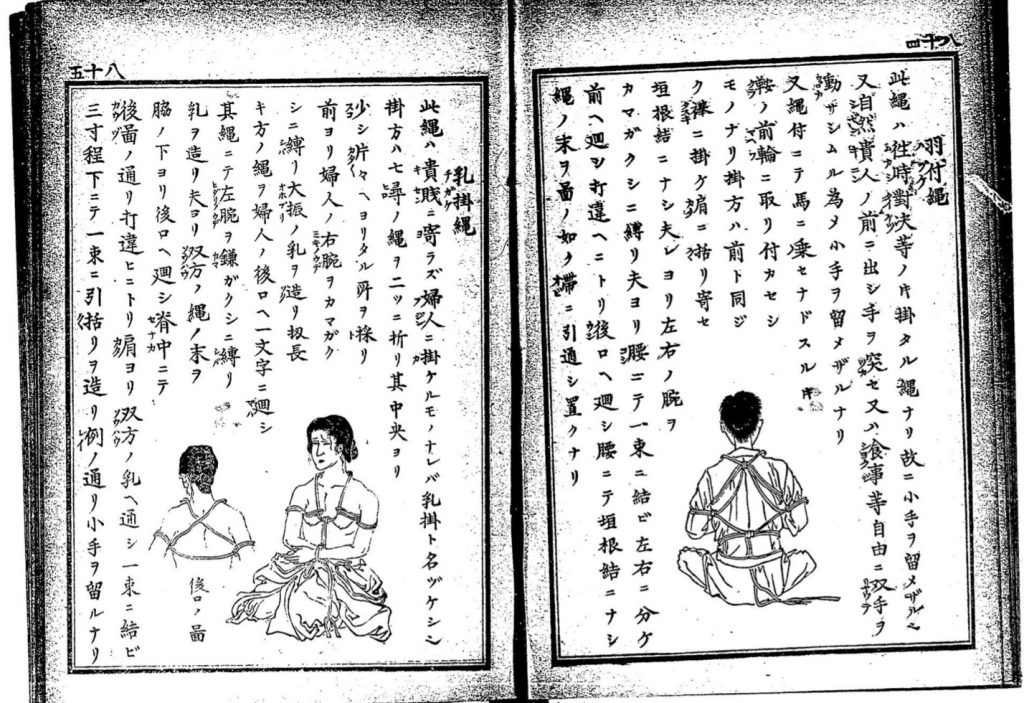 八十四
羽付縄
此縄ハ往時對决等ノ時掛タル縄ナリ故ニ小手ヲ留メザルハ
又自然貴人ノ前ニ出シ手ヲ突セ又ハ食事等自由ニ双手ヲ
動ザシムル為メ小手ヲ留メザルナリ
又縄付ニテ馬ニ乗セナドスル時
鞍ノ前輪ニ取リ付カセシ
モノナリ掛方ハ前ト同ジ
ク襟ニ掛ケ肩ニ括リ寄セ
垣根結ニナシ夫レヨリ左右ノ腕ヲ
カマガクシニ縛リ夫ヨリ腰ニテ一束ニ結ビ左右ニ分ケ
前ヘ廻シ打違ヘニトリ後ロヘ廻シ腰ニテ垣根結ニナシ
縄ノ末ヲ圖ノ如ク帯ニ引通シ置クナリ
八十五
乳掛縄
此縄ハ貴賎ニ寄ラズ婦人ニ掛ケルモノナレバ乳掛ト名ヅケシ
掛方ハ七尋ノ縄ヲ二ッニ折リ其中央ヨリ
少シ片々ヘヨリタル所ヲ採リ
前ヨリ婦人ノ右腕ヲカマガク
シニ縛リ大振ノ乳ヲ造リ扨長
キ方ノ縄ヲ婦人ノ後ロヘ一文字ニ廻シ
其縄ニテ左腕ヲ鎌ガクシニ縛リ
乳ヲ造リ夫ヨリ双方ノ縄ノ末ヲ
脇ノ下ヨリ後ロヘ廻シ脊中ニテ
後圖ノ通リ打違ヒニトリ肩ヨリ双方ノ乳ヘ通シ一束ニ結ビ
三寸程下ニテ一束ニ引括リヲ造リ例ノ通リ小手ヲ留ルナリ
後ロノ圖